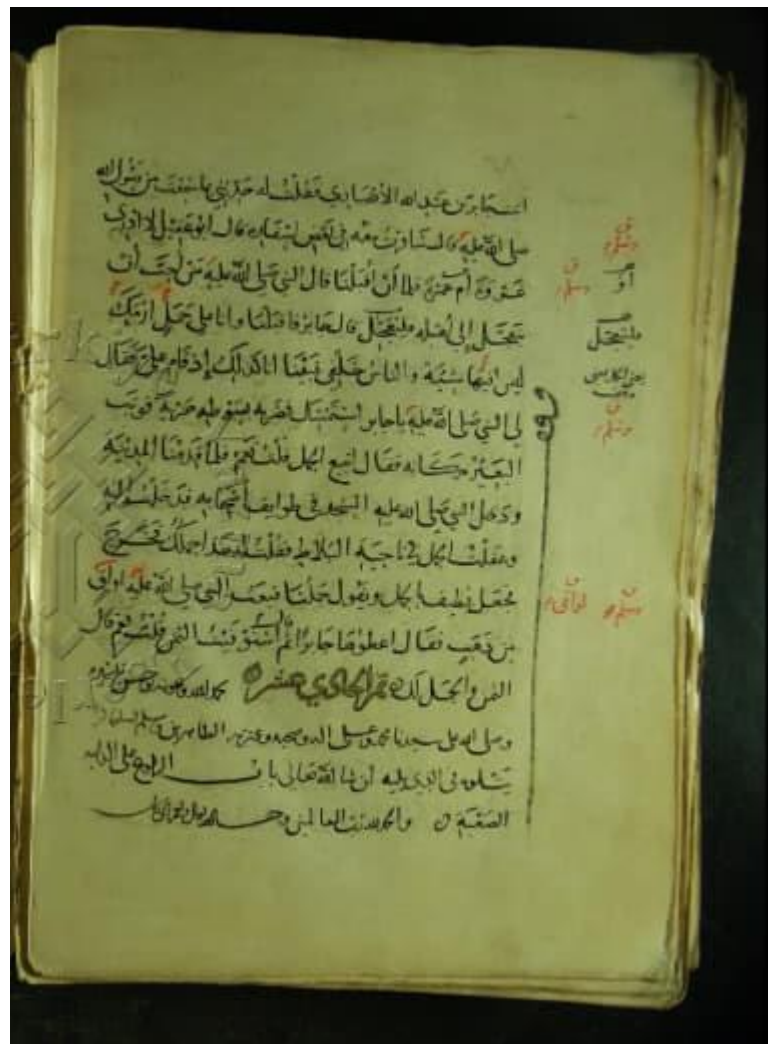 اتيت جابر بن عبد الله الأنصاري فقلت له حدثني ما سمعت من رسول الله
صلى الله عليه قال سافرت معه في بعض اسفاره قال ابو عقيل لا ادري
غزوة أم عمرة فلما أن أقبلنا قال النبي صلى الله عليه من أحب أن
يتعجل إلى أهله فليتعجل قال جابر فاقبلنا وانا على جمل ارمك
ليس فيها شية والناس خلفي فبينا انا كذلك إذ قام علي فقال
لي النبي صلى الله عليه يا جابر استمسك فضربه بسوطه ضربة فوثب
البعير مكانه فقال اتبيع الجمل قلت نعم فلما قدمنا المدينة
ودخل النبي صلى الله عليه المسجد في طوايف أصحابه فدخلت إليه
وعقلت الجمل في ناحية البلاط فقلت له هذا جملك فخرج
فجعل يطيف بالجمل ويقول جملنا فبعث النبي صلى الله عليه اواق
من ذهب فقال اعطوها جابرا ثم قال استوفيت الثمن قلت نعم قال
الثمن والجمل لك تم الحادي عشر بحمد الله وعونه وحسن توفيقه
وصلى الله على سيدنا محمد وعلى اله وصحبه وعترته الطاهرين وسلم تسليما
يتلوه في الذي يليه أن شا الله تعالى باب الركوب على الدابه
الصعبة والحمد لله رب العالمين
وسلم
أو
وسلم
فليتعجل
وسلم
وسلم
اواقي